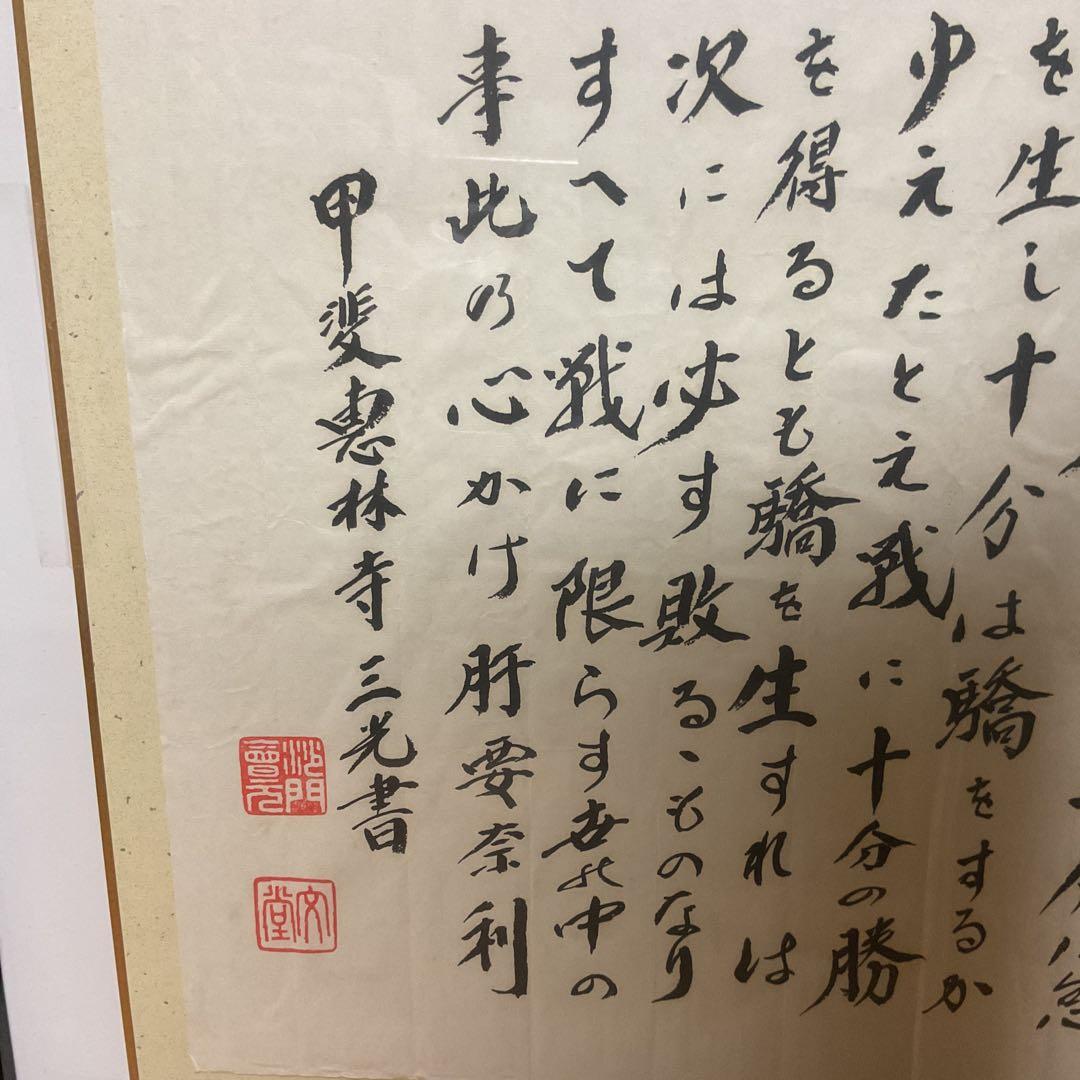 を生し十分は驕をするか
ゆえたとえ戦に十分の勝
を得るとも驕を生すれは
次には必す敗るゝものなり
すへて戦に限らす世の中の
事此の心かけ肝要奈利
甲斐惠林寺三光書
沙門
會元
文
堂